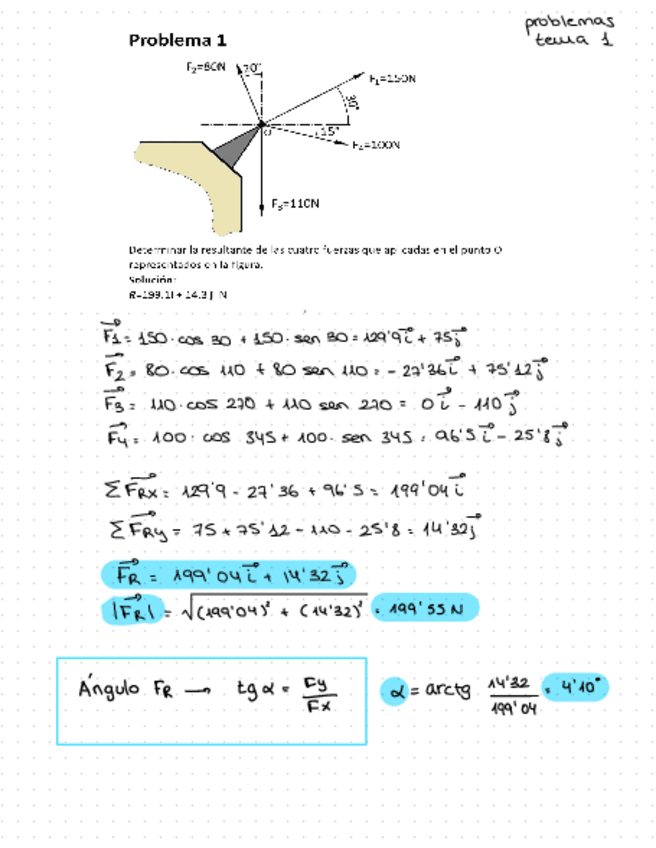 problemas
tema 1
Problema 1
F₂=80N
20°
F₁=150N
30°
O
15°
F₄=100N
F₃=110N
Determinar la resultante de las cuatro fuerzas que aplicadas en el punto O
representados en la figura.
Solución:
R=199.1i + 14.3 j N
F1 = 150·cos 30 + 150·sen 30 = 129'9i + 75j
F2 = 80·cos 110 + 80 sen 110 = -27'36i + 75'12j
F3 = 110·cos 270 + 110 sen 270 = 0i - 110j
F4 = 100·cos 345 + 100·sen 345 = 96'5i - 25'8j
ΣFRx = 129'9 - 27'36 + 96'5 = 199'04i
ΣFRy = 75 + 75'12 - 110 - 25'8 = 14'32j
FR = 199'04i + 14'32j
|FR| = √(199'04)² + (14'32)² = 199'55 N
Ángulo FR → tg α = Fy/Fx
α = arctg 14'32/199'04 = 4'10°